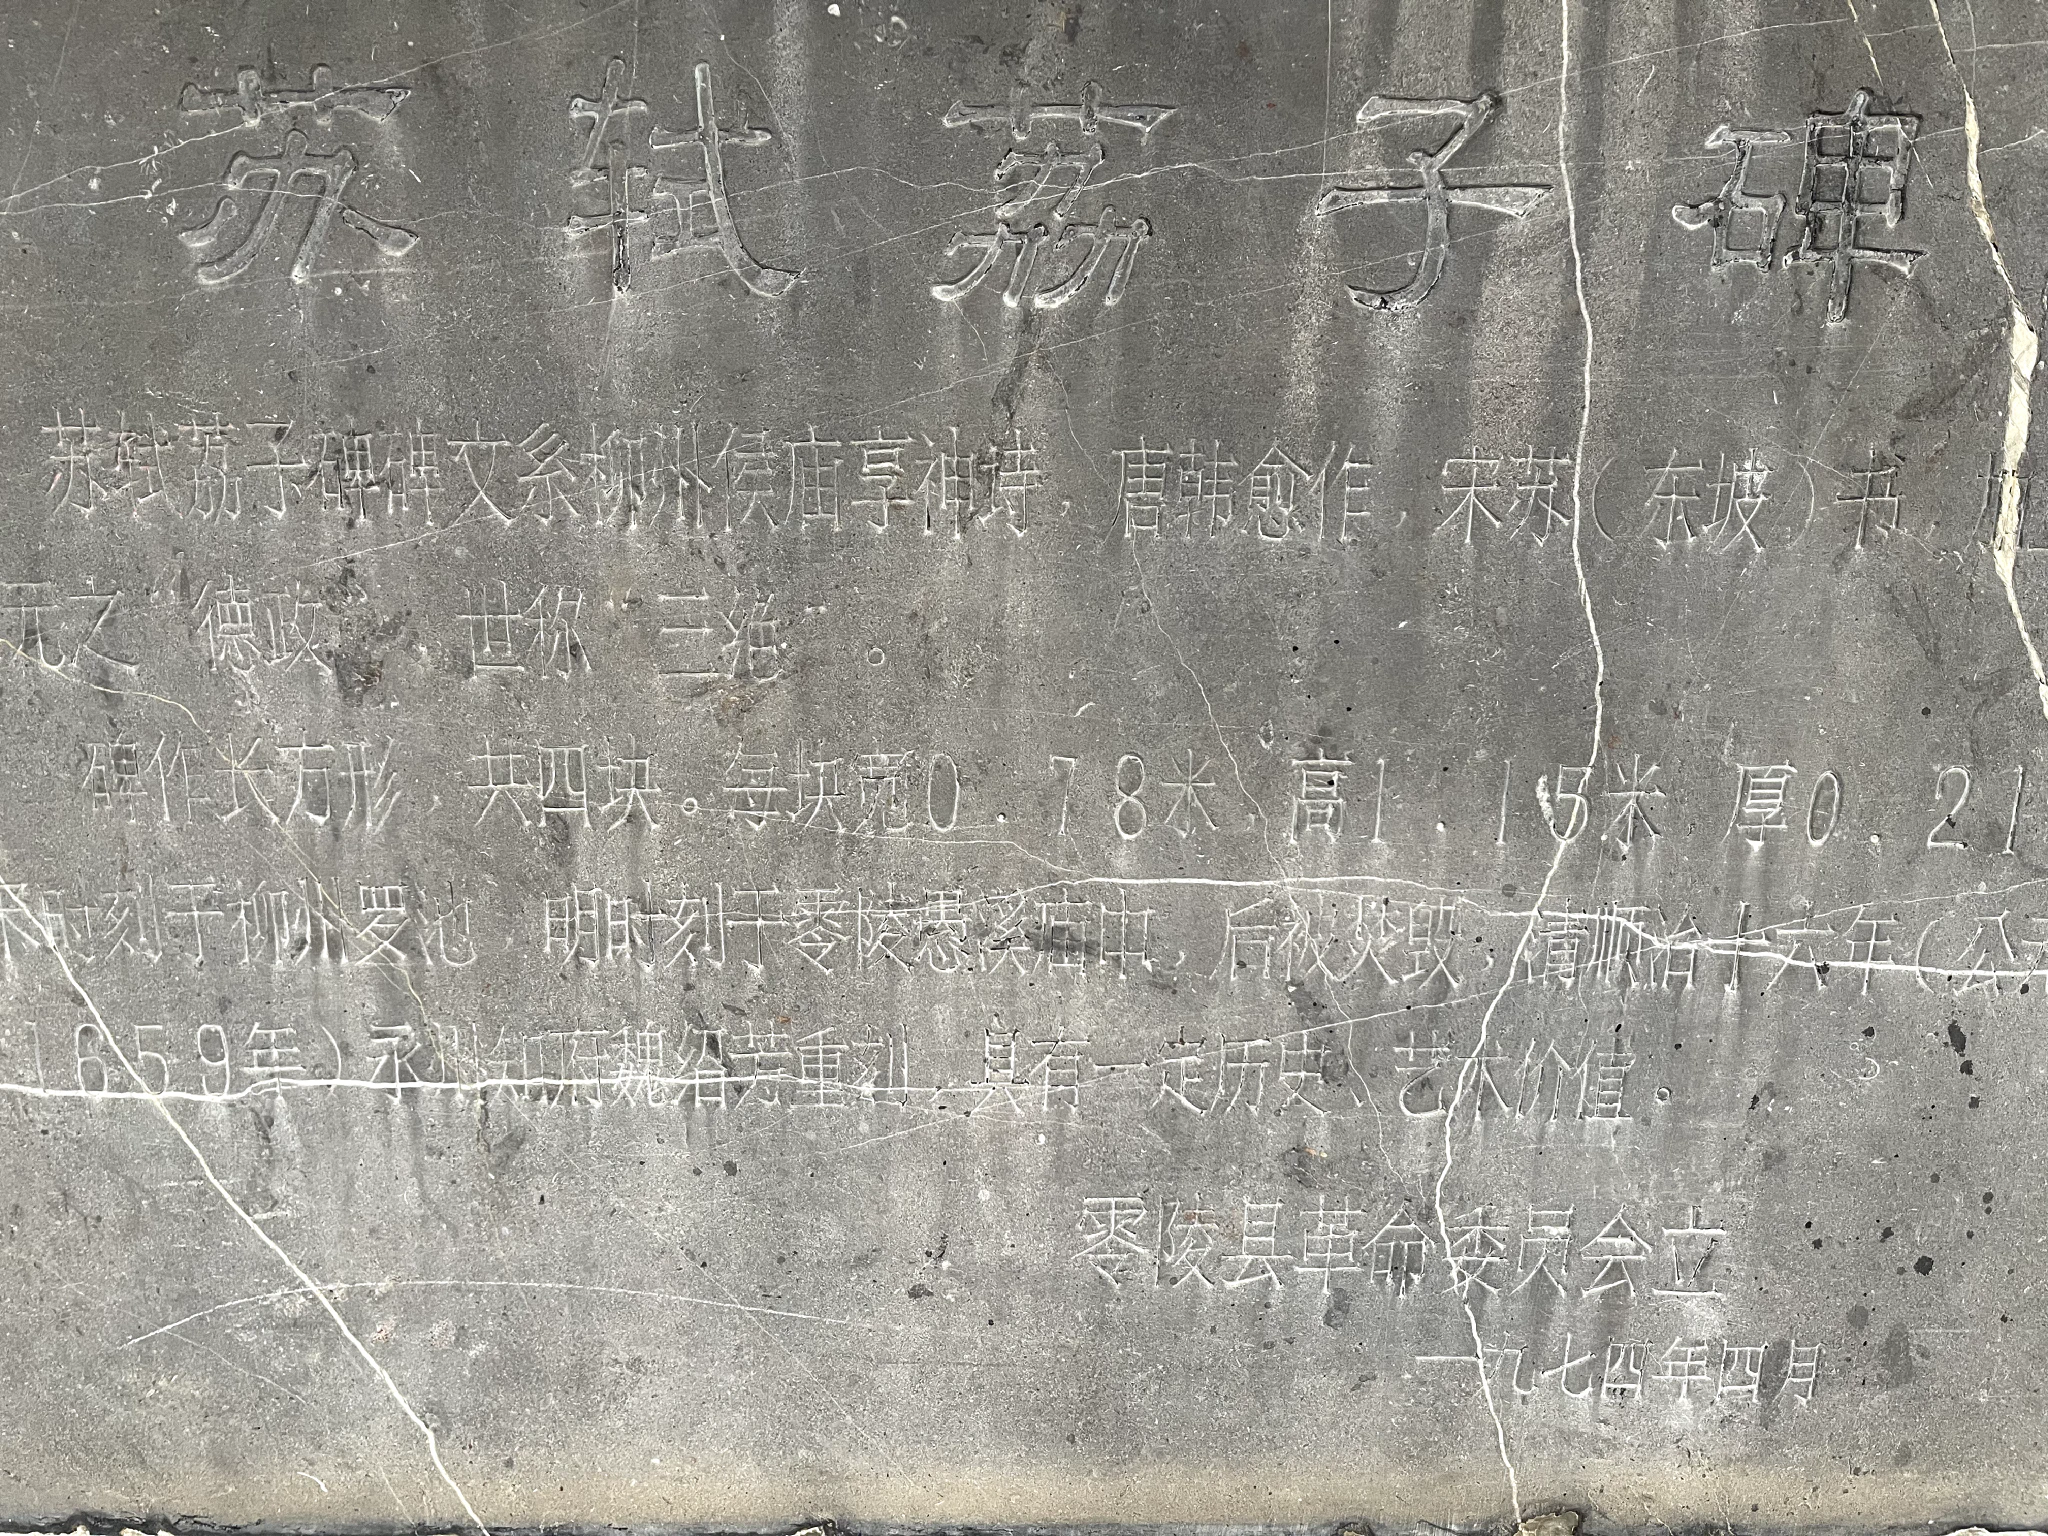 苏轼荔子碑
苏轼荔子碑碑文系柳州侯庙享神诗，唐韩愈作，宋苏（东坡）书
元之“德政”，世称“三绝”。
碑作长方形，共四块。每块宽0.78米，高1.15米，厚0.21
时刻于柳州罗池，明时刻于零陵愚溪庙中，后被焚毁，清顺治十六年（公元
1659年）永州知府魏绍芳重刻，具有一定历史、艺术价值。
零陵县革命委员会立
一九七四年四月